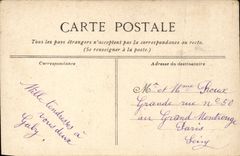 CARTE POSTALE
Tous les pays étrangers n'acceptent pas la correspondance au recto.
(Se renseigner à la poste.)
Correspondance
Adresse du destinataire
Mille tendresses à
vous deux
Gaby.
Mr et Mme Sioux
Grande rue no 50
au Grand Montrouge
Paris
Seine